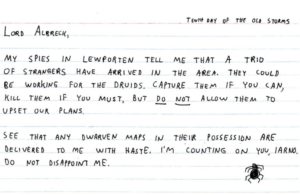 TENTH DAY OF THE OLD STORMS
LORD ALBRECK,
MY SPIES IN LEWPORTEN TELL ME THAT A TRIO
OF STRANGERS HAVE ARRIVED IN THE AREA. THEY COULD
BE WORKING FOR THE DRUIDS. CAPTURE THEM IF YOU CAN,
KILL THEM IF YOU MUST, BUT DO NOT ALLOW THEM TO
UPSET OUR PLANS.
SEE THAT ANY DWARVEN MAPS IN THEIR POSSESSION ARE
DELIVERED TO ME WITH HASTE. I'M COUNTING ON YOU, IARNO.
DO NOT DISAPPOINT ME.